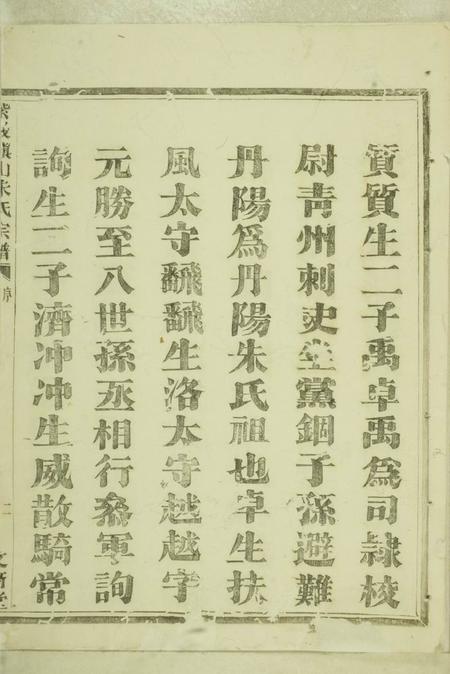 質質生二子禹卓禹為司隷校
尉青州刺史坐黨錮子孫避難
丹陽為丹陽朱氏祖也卓生扶
風太守翻翻生洛太守越越字
元勝至八世孫丞相行叅軍詢
詢生二子濟冲冲生威散騎常
鎮山朱氏宗譜 序 二